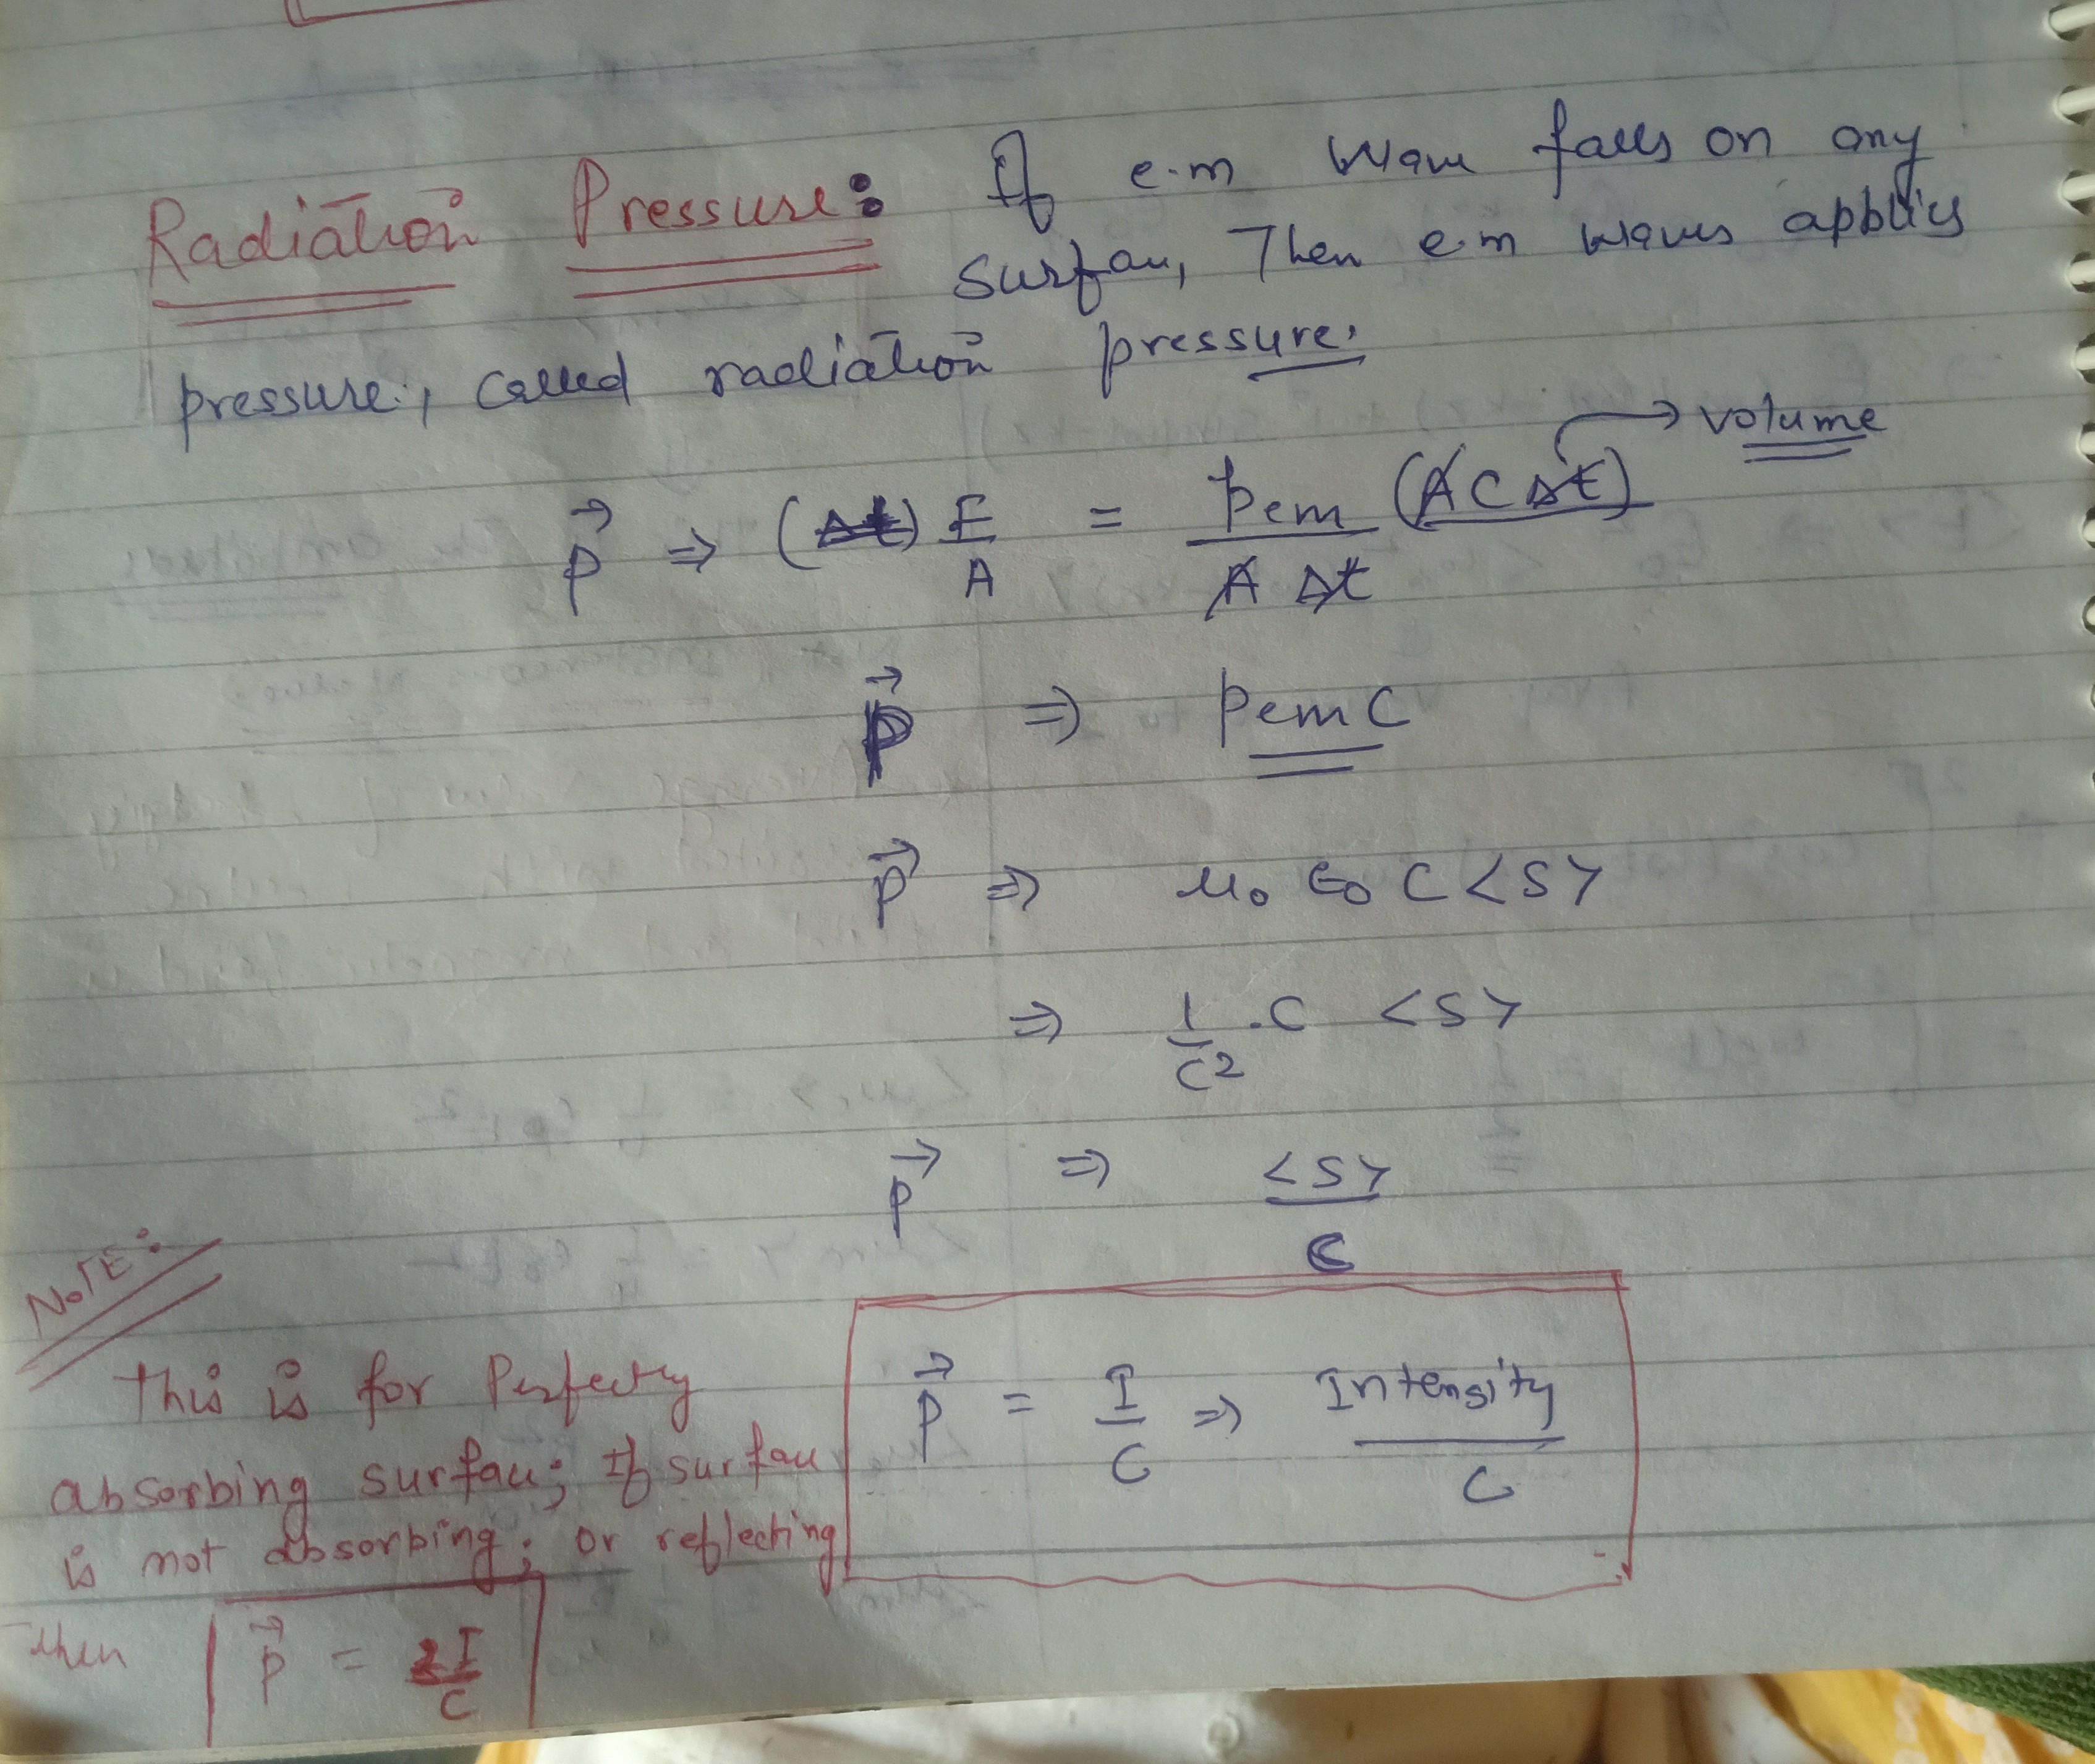 Radiation Pressure: If e.m wave falls on any
surface, Then e.m waves applies
pressure, called radiation pressure.
→ volume
P⃗ ⇒ F/A = Pem (A C Δt) / A Δt
P⃗ ⇒ Pem C
P⃗ ⇒ μ₀ ϵ₀ C <S>
⇒ 1/C² . C <S>
P⃗ ⇒ <S>/C
P⃗ = I/C ⇒ Intensity/C
NOTE:
This is for Perfectly
absorbing surface; If surface
is not absorbing; or reflecting
Then P⃗ = 2I/C